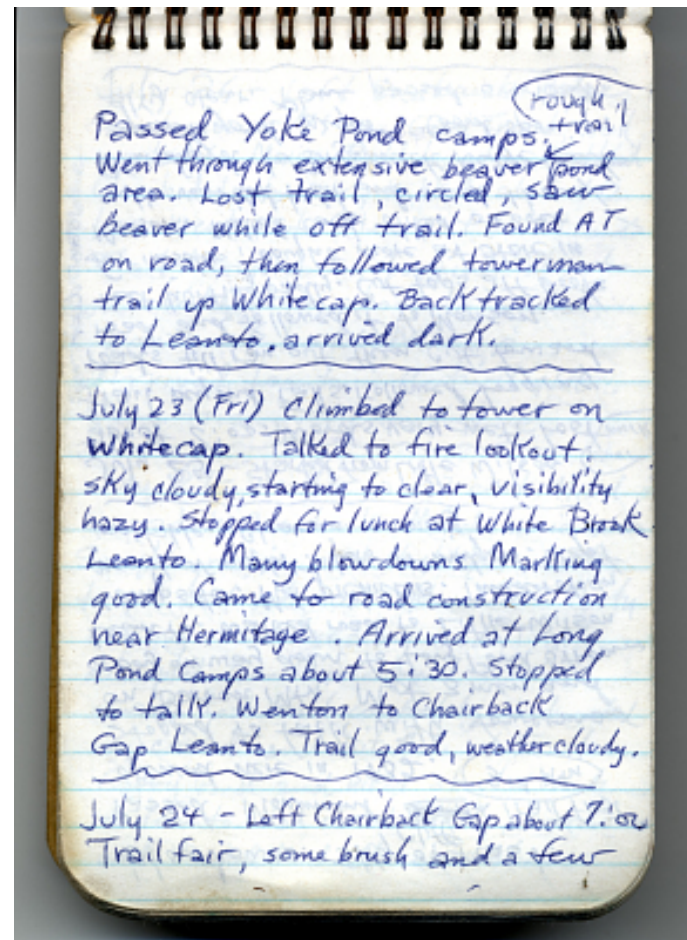 rough
trail
Passed Yoke Pond camps.
Went through extensive beaver pond
area. Lost trail, circled, saw
beaver while off trail. Found AT
on road, then followed towerman
trail up Whitecap. Backtracked
to Leanto, arrived dark.
July 23 (Fri) Climbed to tower on
Whitecap. Talked to fire lookout.
sky cloudy, starting to clear, visibility
hazy. Stopped for lunch at White Brook
Leanto. Many blowdowns. Marking
good. Came to road construction
near Hermitage. Arrived at Long
Pond Camps about 5:30. Stopped
to talk. Went on to Chairback
Gap Leanto. Trail good, weather cloudy.
July 24 - Left Chairback Gap about 7:00
Trail fair, some brush and a few